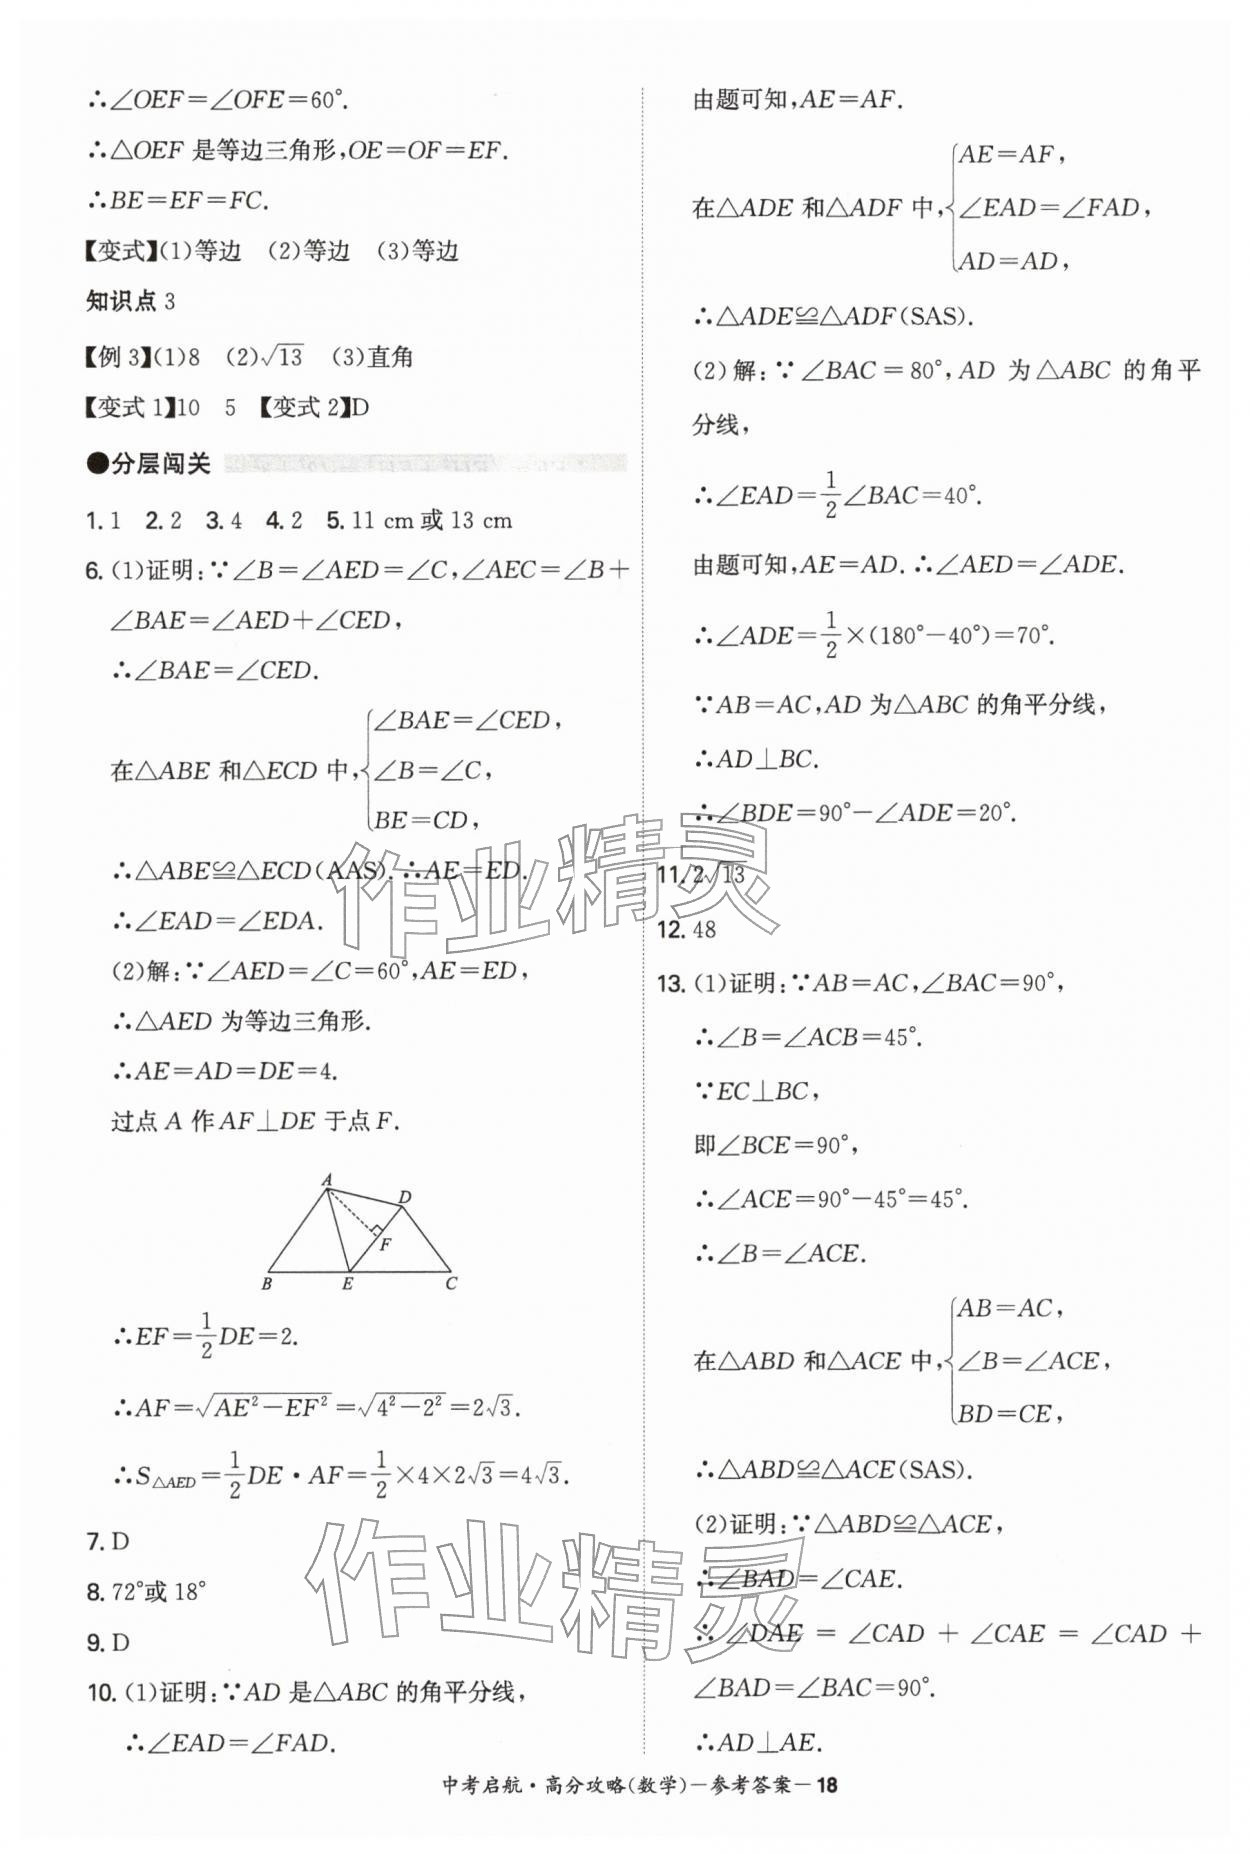 ∴∠OEF=∠OFE=60°.
∴△OEF 是等边三角形,OE=OF=EF.
∴BE=EF=FC.
【变式】(1)等边 (2)等边 (3)等边
知识点 3
【例 3】(1)8 (2)√13 (3)直角
【变式 1】10 5 【变式 2】D
●分层闯关
1. 1 2. 2 3. 4 4. 2 5. 11 cm 或 13 cm
6. (1)证明:∵∠B=∠AED=∠C,∠AEC=∠B+
∠BAE=∠AED+∠CED,
∴∠BAE=∠CED.
在△ABE 和△ECD 中,{∠BAE=∠CED,
∠B=∠C,
BE=CD,
∴△ABE≌△ECD(AAS).∴AE=ED.
∴∠EAD=∠EDA.
(2)解:∵∠AED=∠C=60°,AE=ED,
∴△AED 为等边三角形.
∴AE=AD=DE=4.
过点 A 作 AF⊥DE 于点 F.
A
D
F
B E C
∴EF=1/2DE=2.
∴AF=√(AE²-EF²)=√(4²-2²)=2√3.
∴S△AED=1/2DE·AF=1/2×4×2√3=4√3.
7. D
8. 72°或 18°
9. D
10. (1)证明:∵AD 是△ABC 的角平分线,
∴∠EAD=∠FAD.
由题可知,AE=AF.
在△ADE 和△ADF 中,{AE=AF,
∠EAD=∠FAD,
AD=AD,
∴△ADE≌△ADF(SAS).
(2)解:∵∠BAC=80°,AD 为△ABC 的角平
分线,
∴∠EAD=1/2∠BAC=40°.
由题可知,AE=AD.∴∠AED=∠ADE.
∴∠ADE=1/2×(180°-40°)=70°.
∵AB=AC,AD 为△ABC 的角平分线,
∴AD⊥BC.
∴∠BDE=90°-∠ADE=20°.
11. 2√13
12. 48
13. (1)证明:∵AB=AC,∠BAC=90°,
∴∠B=∠ACB=45°.
∵EC⊥BC,
即∠BCE=90°,
∴∠ACE=90°-45°=45°.
∴∠B=∠ACE.
在△ABD 和△ACE 中,{AB=AC,
∠B=∠ACE,
BD=CE,
∴△ABD≌△ACE(SAS).
(2)证明:∵△ABD≌△ACE,
∴∠BAD=∠CAE.
∴∠DAE=∠CAD+∠CAE=∠CAD+
∠BAD=∠BAC=90°.
∴AD⊥AE.
作业精灵
作业精灵
中考启航·高分攻略(数学)—参考答案—18